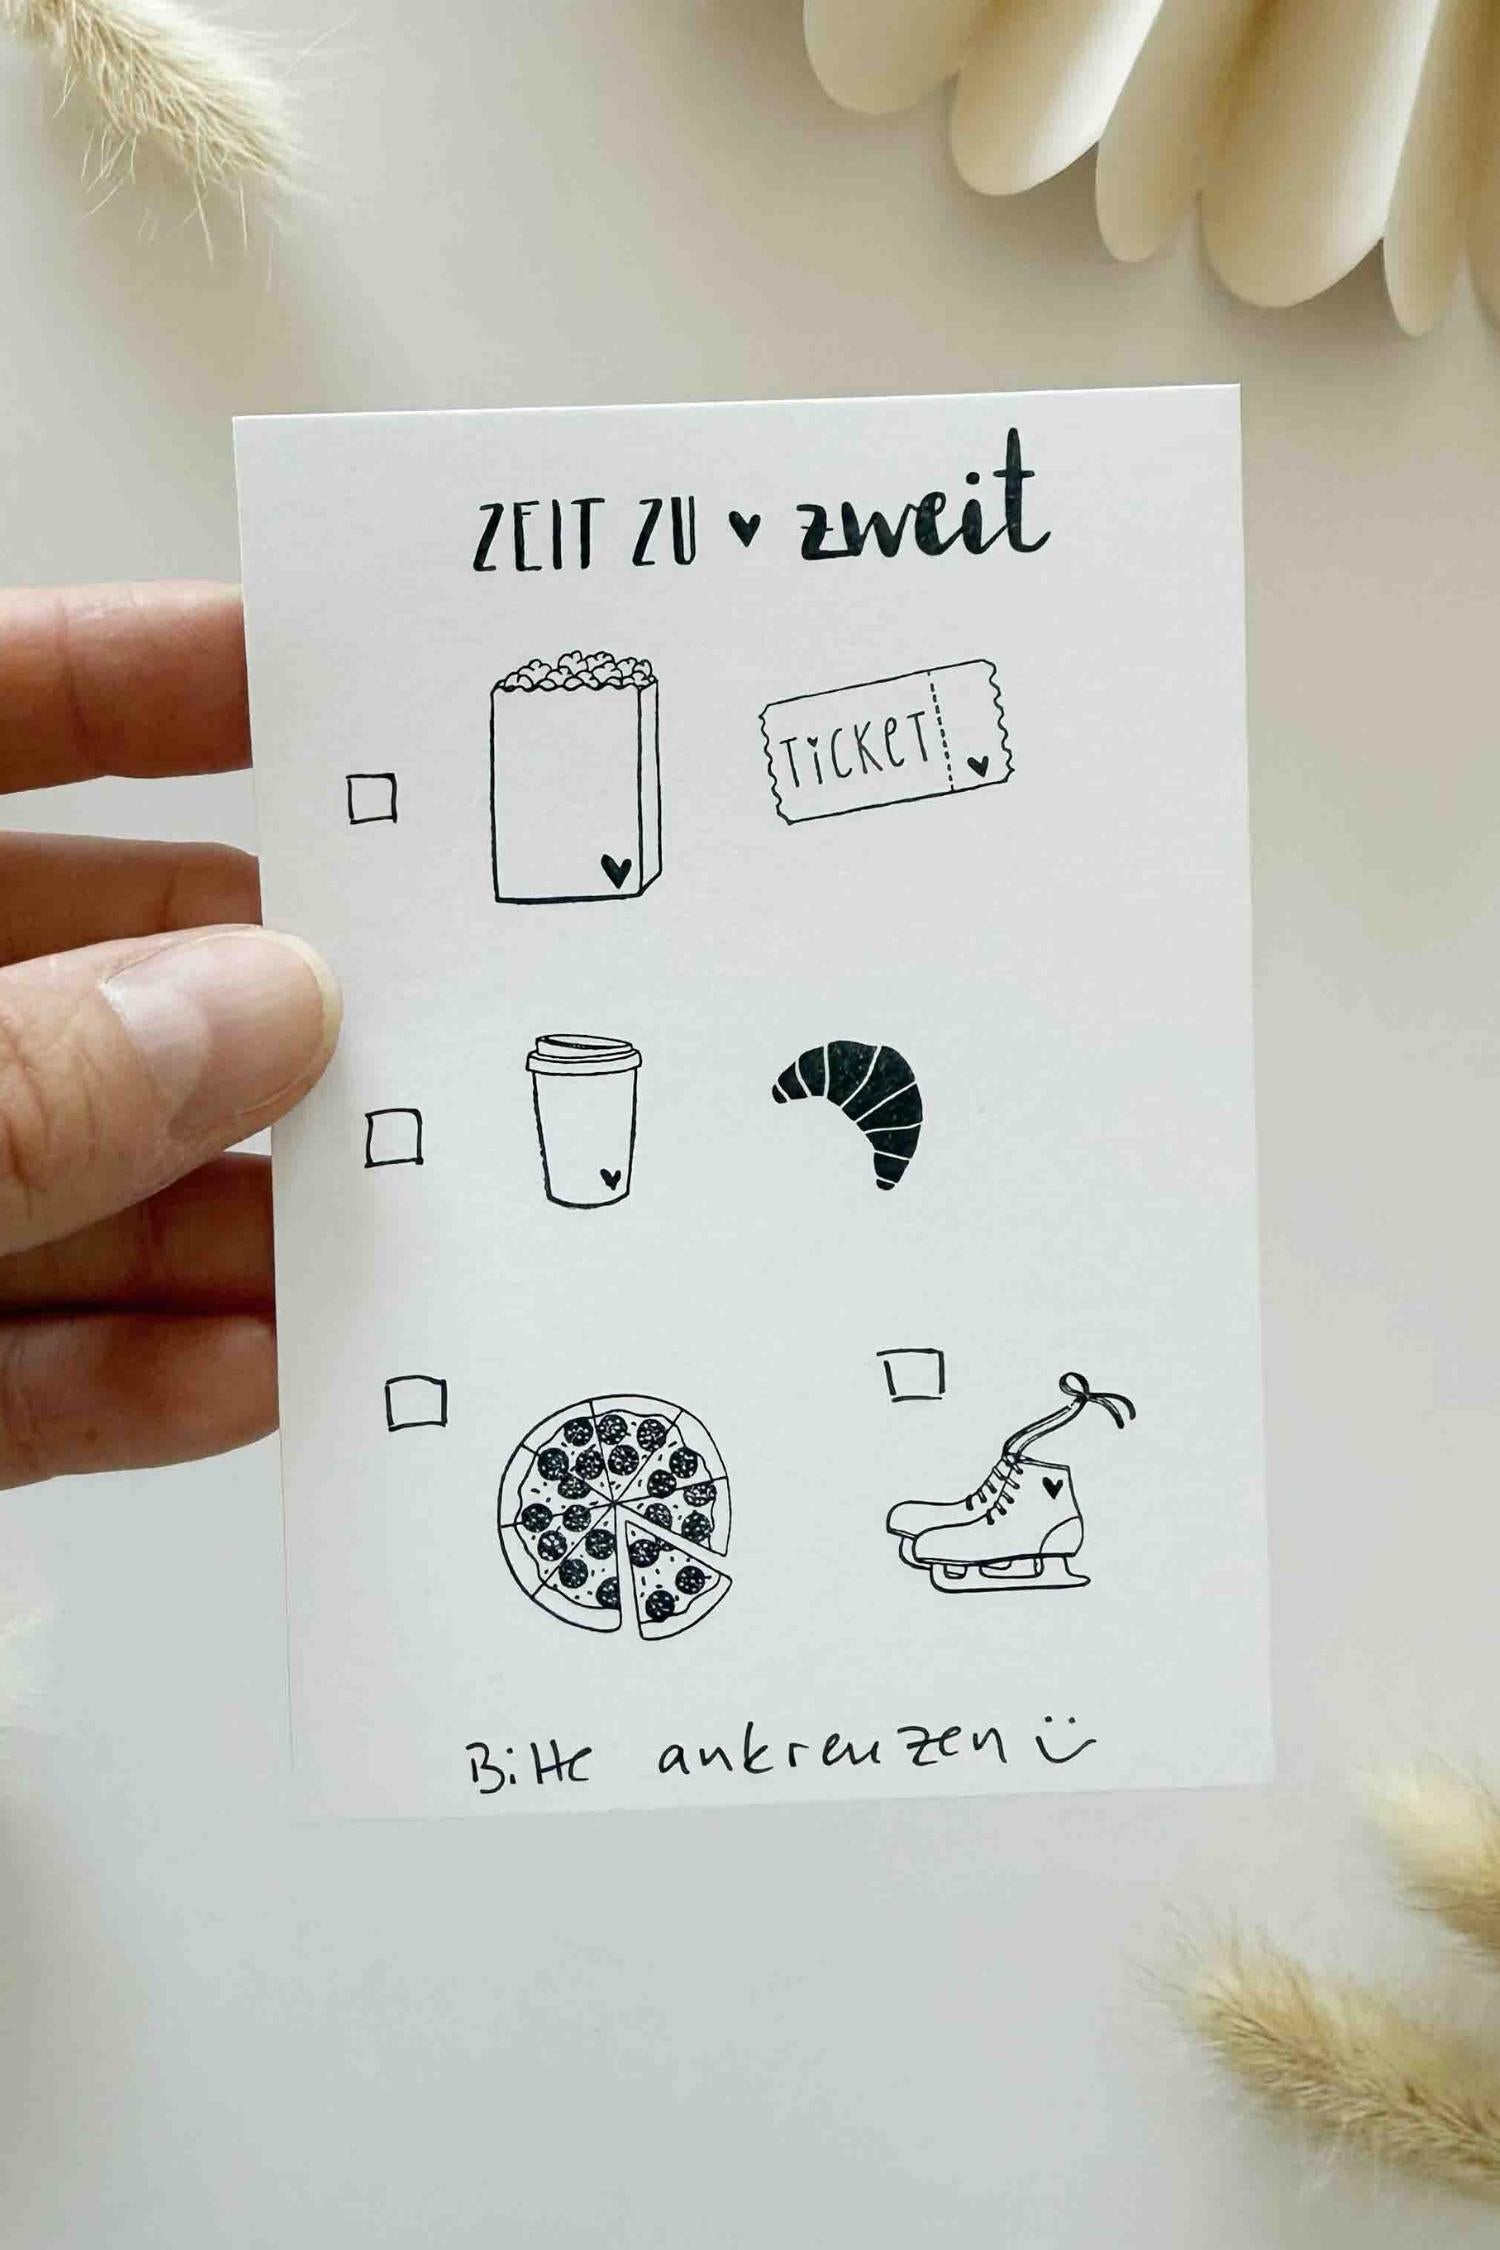 ZEIT ZU ♥ zweit
TiCKeT
Bitte ankreuzen :)